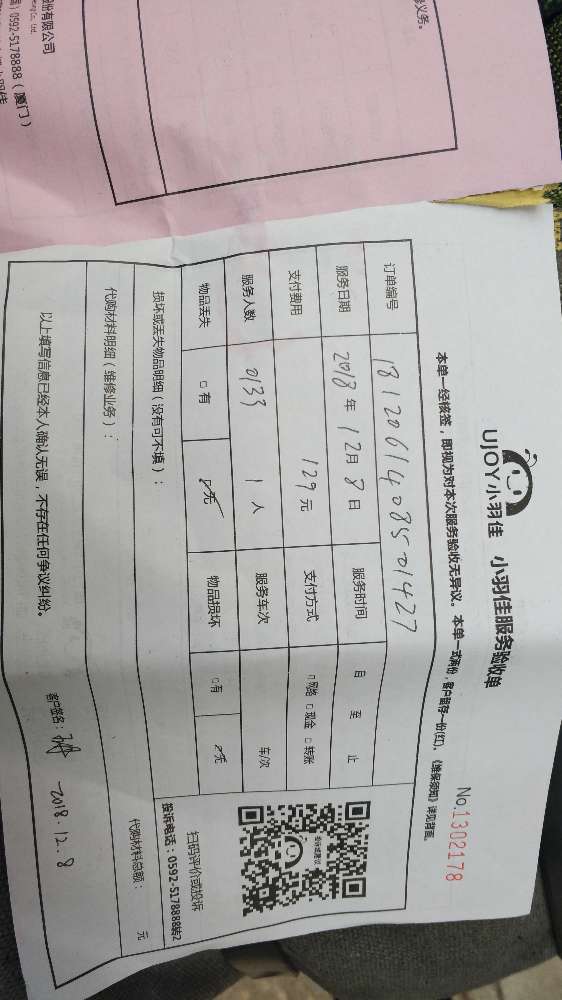 修义务。
股份有限公司
0592-5178888（厦门）
UJOY小羽佳 小羽佳服务验收单
No.1302178
本单一经核签，即视为对本次服务验收无异议。本单一式两份，客户留存一份(红)。《维保须知》详见背面。
订单编号 1812061408501427
服务日期 2018年12月8日 服务时间 自 至 止
支付费用 129元 支付方式 □网络 □现金 □转账
服务人数 0133 1人 服务车次 车/次
物品丢失 □有 ☑无 物品损坏 □有 ☑无
损坏或丢失物品明细（没有可不填）：
代购材料明细（维修业务）： 代购材料总额： 元
投诉或建议
扫码评价或投诉
投诉电话：0592-5178888转2
以上填写信息已经本人确认无误，不存在任何争议纠纷。
客户签名： 2018.12.8